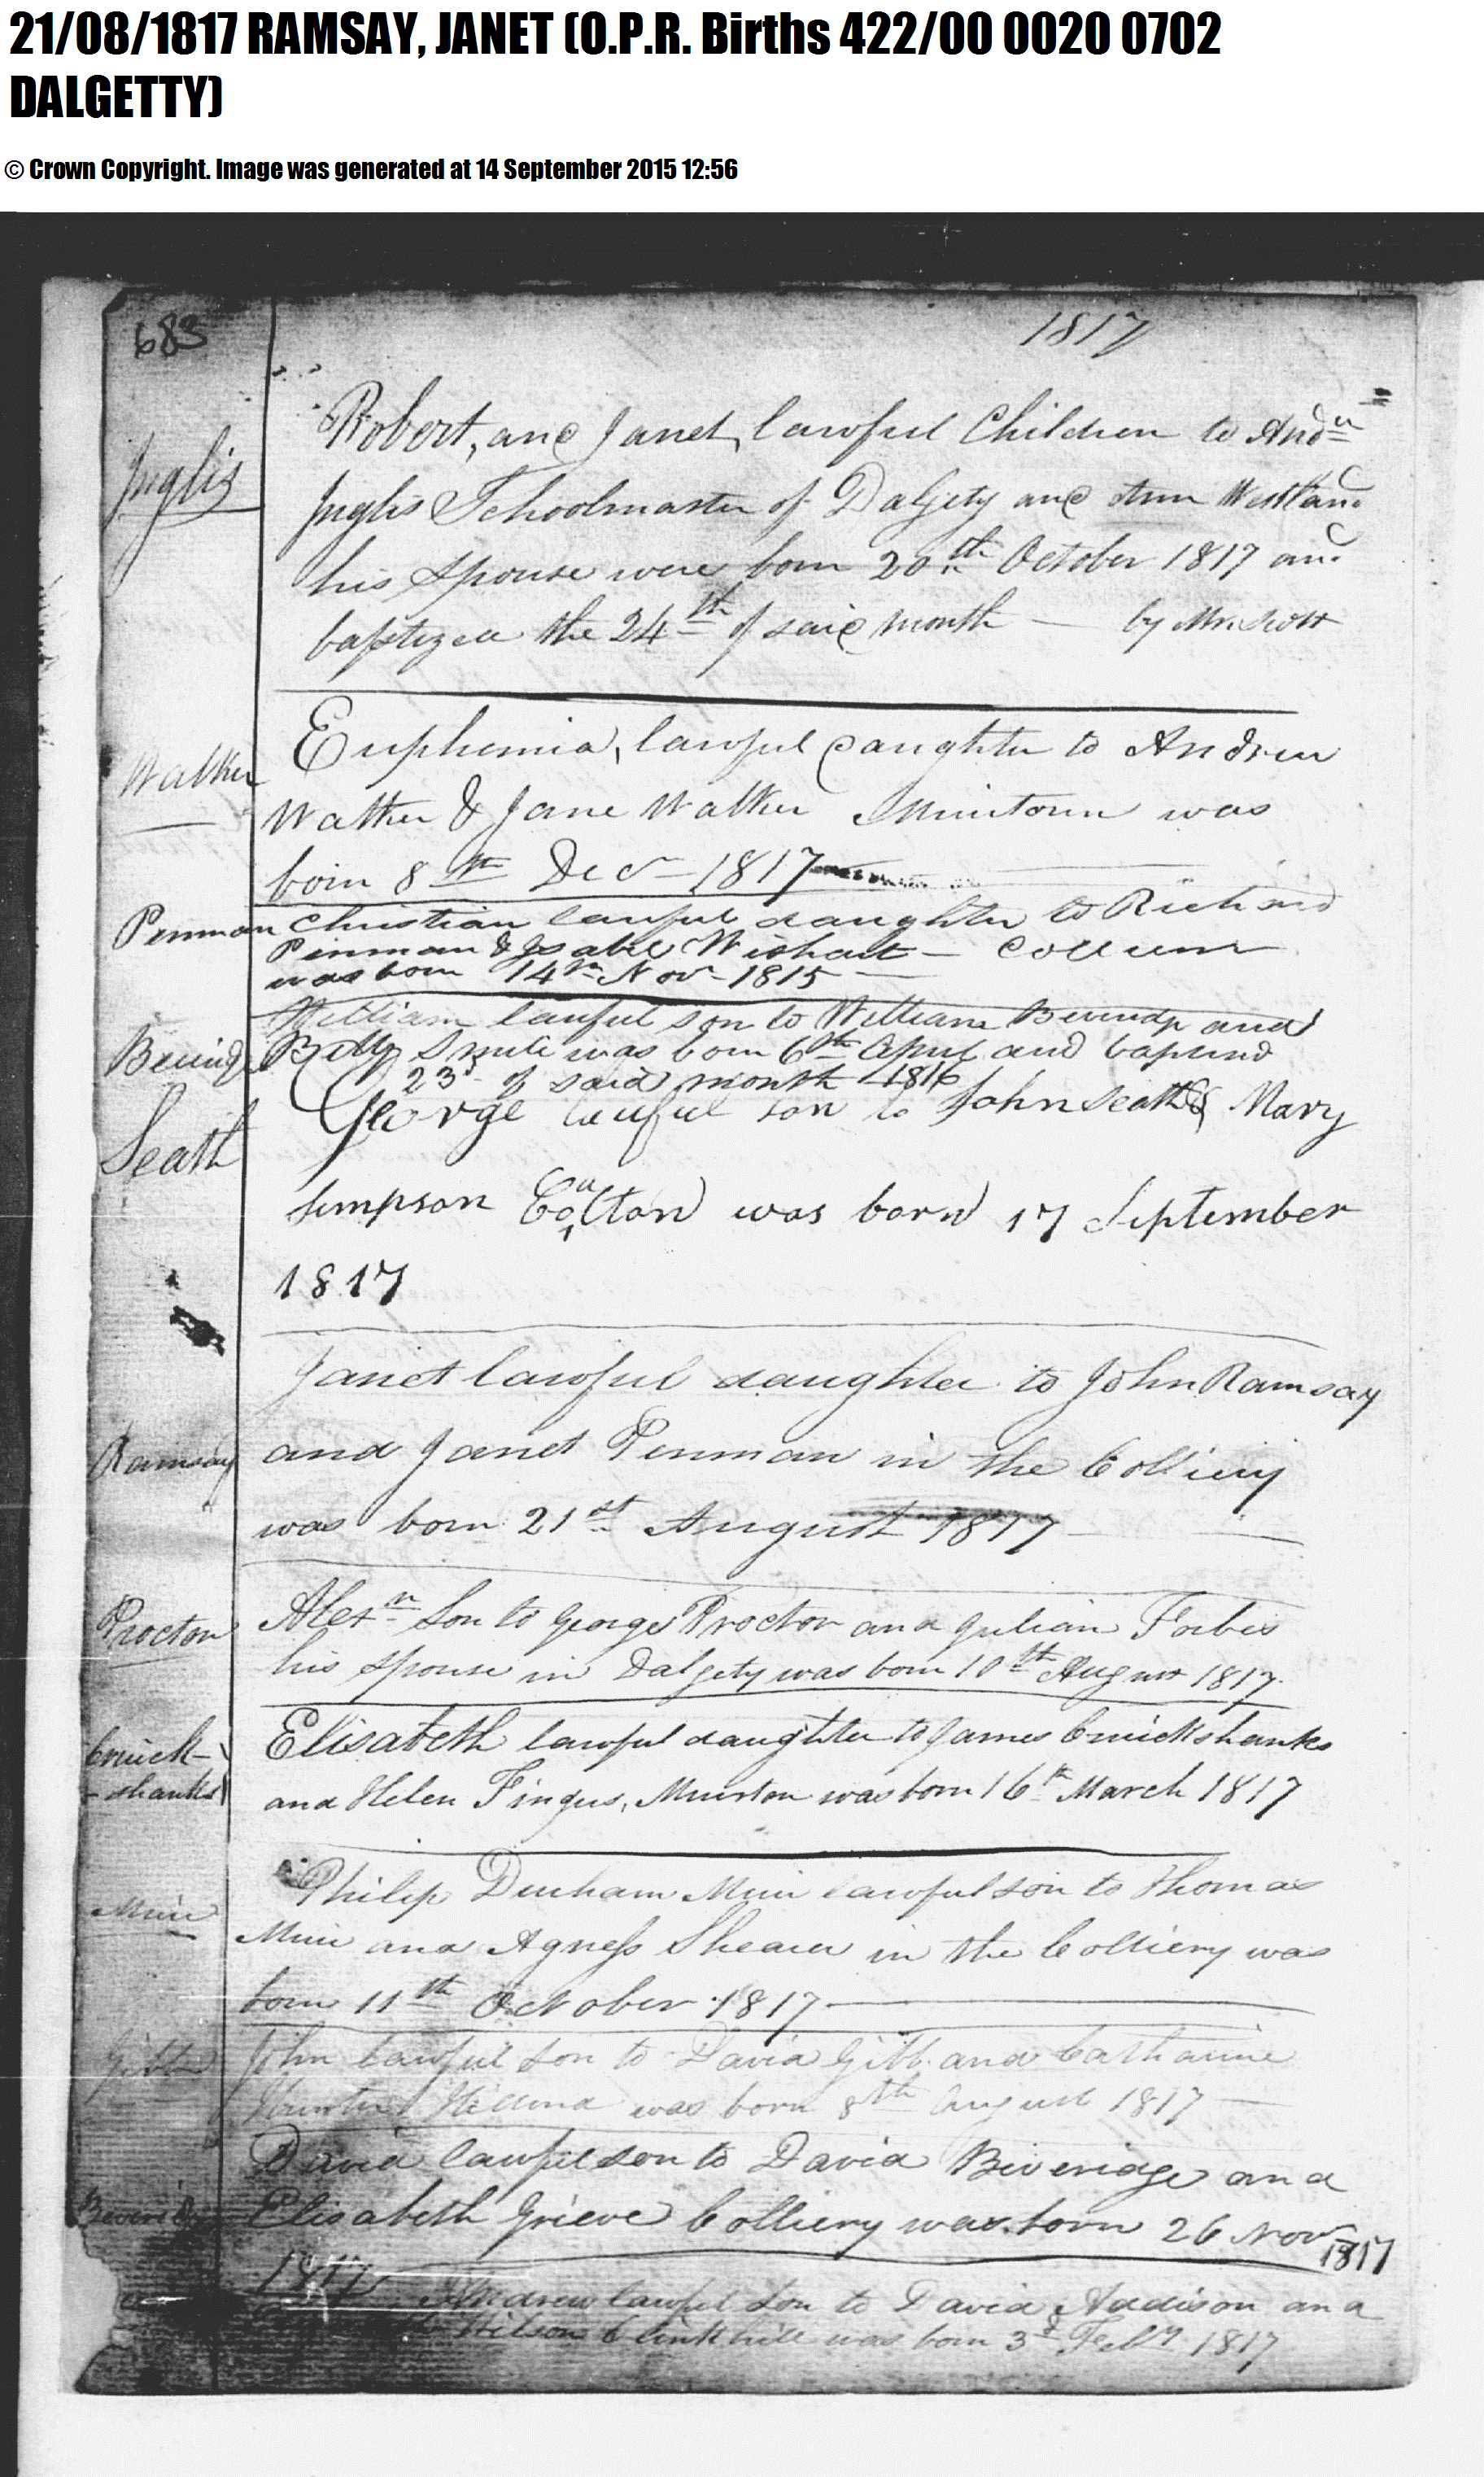 21/08/1817 RAMSAY, JANET (O.P.R. Births 422/00 0020 0702
DALGETTY)
© Crown Copyright. Image was generated at 14 September 2015 12:56
683
1817
Inglis
Robert, and Janet, lawful Children to Andw
Inglis Schoolmaster of Dalgety and Ann Westland
his spouse were born 20th October 1817 and
baptized the 24th of said month — by Mr. Scott
Walker
Euphemia, lawful daughter to Andrew
Walker & Jane Walker Muirtown was
born 8th Decr 1817
Penman
Christian lawful daughter to Richard
Penman & Isabel Wishart —
was born 14th Novr 1815 —
William lawful son to William and
Betty was born 6th April and baptised
23d of said month 1816
Seath
George lawful son to John Seath & Mary
Simpson was born 17 September
1817
Janet lawful daughter to John Ramsay
Ramsay
and Janet Penman in the Colliery
was born 21st August 1817
Proctor
Alexr Son to George Proctor and Julian Forbes
his spouse in Dalgety was born 10th August 1817.
Cruick-
-shanks
Elisabeth lawful daughter to James Cruickshanks
and Helen Fingus, Muirton was born 16th March 1817
Philip Durham Muir lawful son to Thomas
Muir
Muir and Agness Shearer in the Colliery was
born 11th October 1817
Gibb
John lawful son to David Gibb and Catharine
Hunter was born 8th August 1817
David lawful son to David Beveridge and
Beveridge
Elisabeth Grieve Colliery was born 26 Novr
1817
1817
Andrew lawful son to David Addison and
Wilson Clinkhill was born 3d Feby 1817